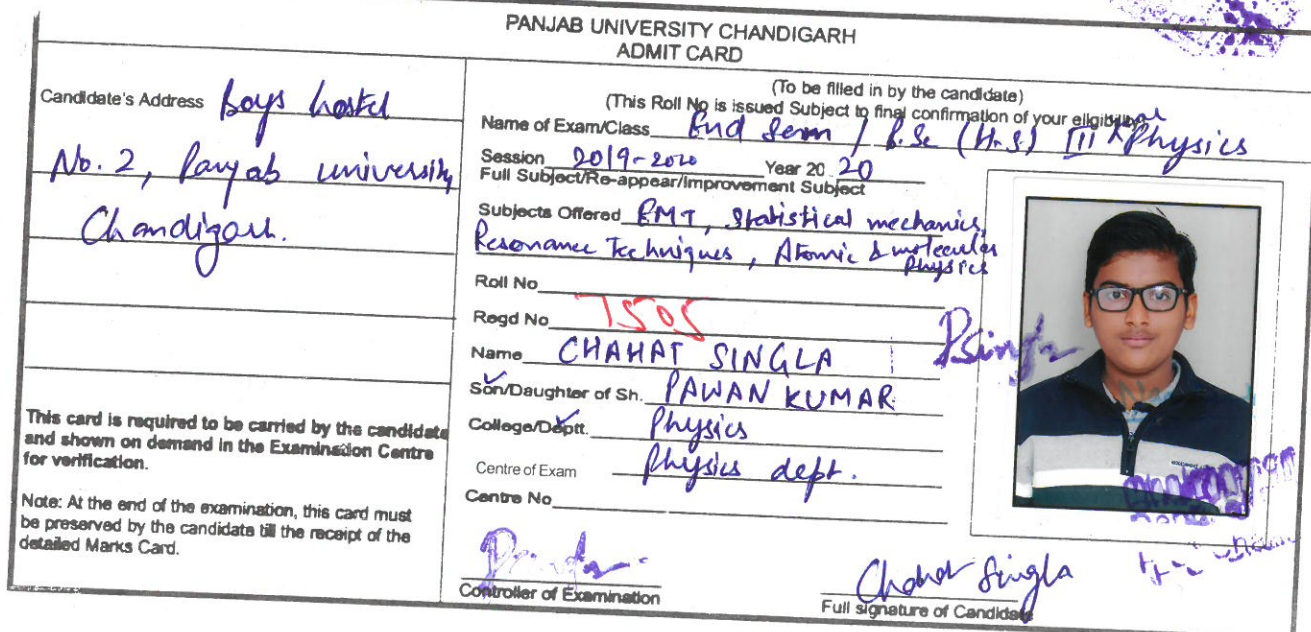 PANJAB UNIVERSITY CHANDIGARH
ADMIT CARD
Candidate's Address Boys hostel
No. 2, Panjab university
Chandigarh.
This card is required to be carried by the candidate
and shown on demand in the Examination Centre
for verification.
Note: At the end of the examination, this card must
be preserved by the candidate till the receipt of the
detailed Marks Card.
(To be filled in by the candidate)
(This Roll No is issued Subject to final confirmation of your eligibility)
Name of Exam/Class End Sem / B.Sc (H.S) III Physics
Session 2019-2020 Year 20 20
Full Subject/Re-appear/Improvement Subject
Subjects Offered EMT, Statistical mechanics,
Resonance Techniques, Atomic & molecular
Physics
Roll No
Regd No 1505
Name CHAHAT SINGLA
Son/Daughter of Sh. PAWAN KUMAR
College/Deptt. Physics
Centre of Exam Physics dept.
Centre No
Controller of Examination
Chahat Singla
Full signature of Candidate